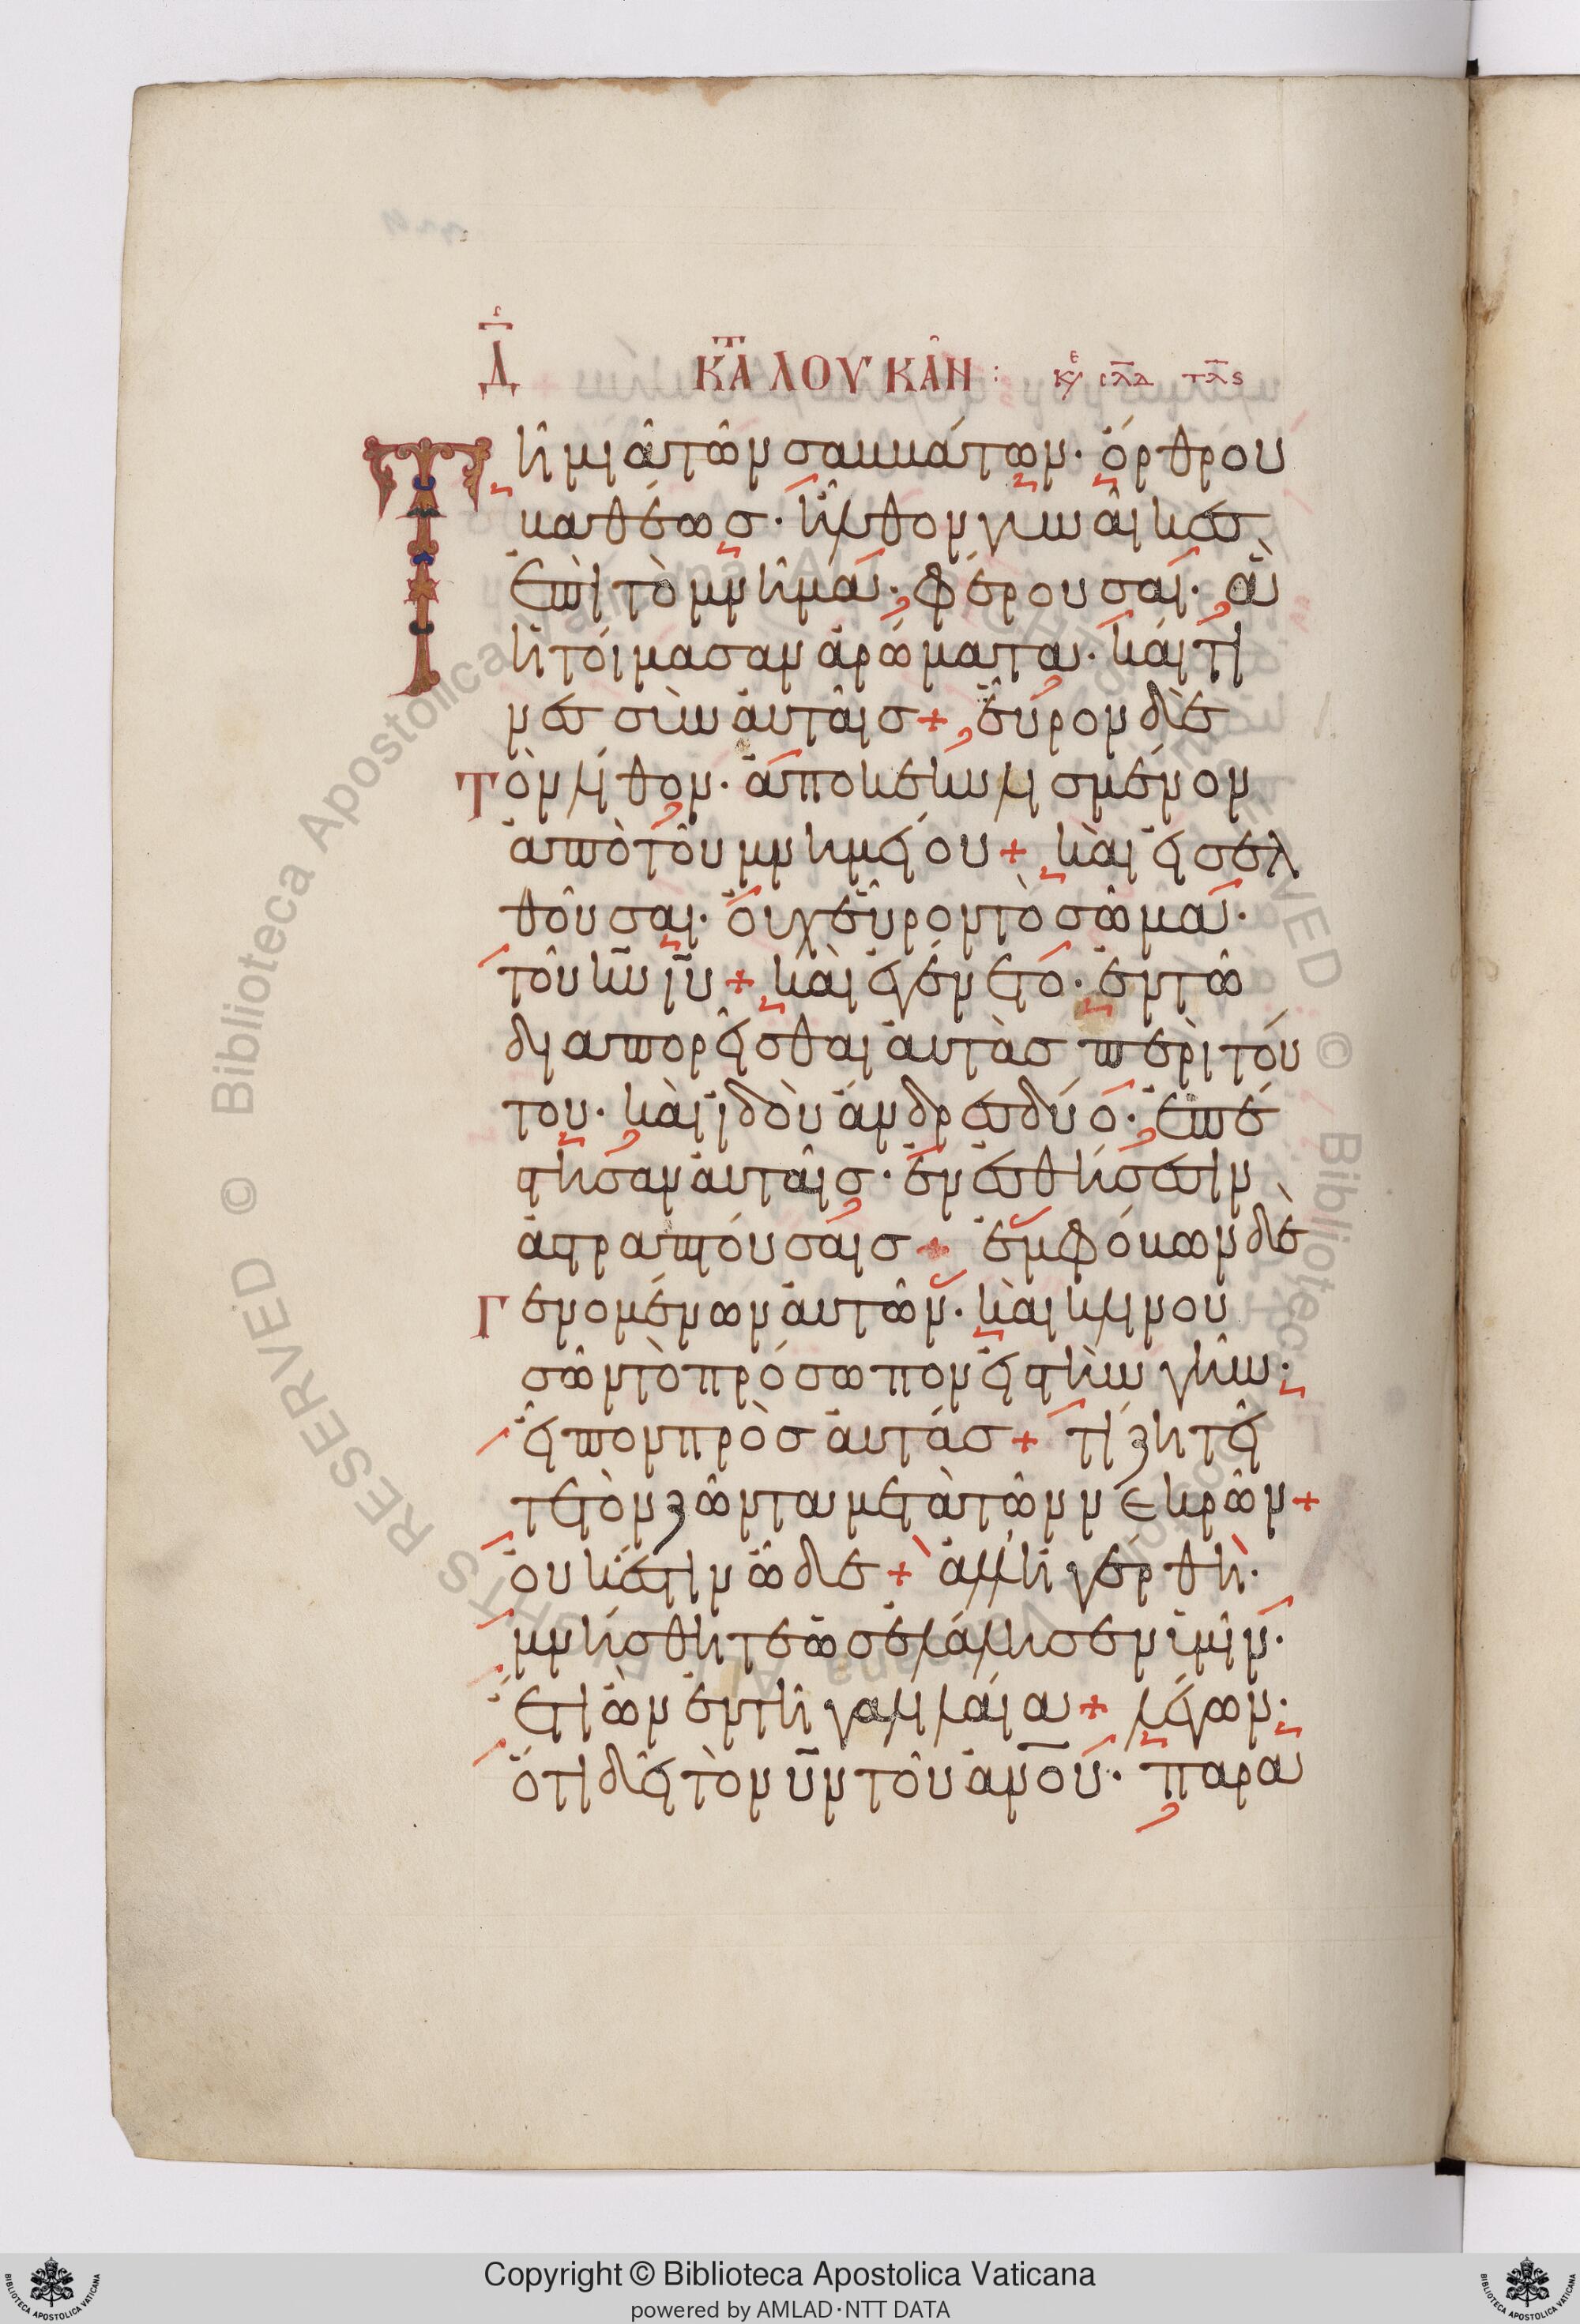 Δ
ΚΑΤ ΛΟΥΚΑΝ :
Τῆ μιᾶ τῶν σαββάτων· ὄρθρου
βαθέως· ἦλθον γυναῖκες
ἐπὶ τὸ μνῆμα· φέρουσαι· ἃ
ἡτοίμασαν ἀρώματα· καί τι
νες σὺν αὐταῖς + εὗρον δὲ
τὸν λίθον· ἀποκεκυλισμένον
ἀπὸ τοῦ μνημείου + καὶ εἰσελ
θοῦσαι· οὐχ εὗρον τὸ σῶμα·
τοῦ κ̅υ̅ ι̅υ̅ + καὶ ἐγένετο· ἐν τῶ
διαπορεῖσθαι αὐτὰς περὶ τού
του· καὶ ἰδοὺ ἄνδρες δύο· ἐπέ
στησαν αὐταῖς· ἐν ἐσθήσεσιν
ἀστραπτούσαις + ἐμφόβων δὲ
γενομένων αὐτῶν· καὶ κλινου
σῶν τὸ πρόσωπον εἰς τὴν γῆν·
εἶπον πρὸς αὐτάς + τί ζητεῖ
τε τὸν ζῶντα μετὰ τῶν νεκρῶν +
οὐκ ἔστιν ὧδε + ἀλλ' ἠγέρθη·
μνήσθητε ὡς ἐλάλησεν ὑμῖν·
ἔτι ὢν ἐν τῆ γαλιλαία + λέγων·
ὅτι δεῖ τὸν υ̅ν̅ τοῦ α̅ν̅ο̅υ̅· παρα
Copyright © Biblioteca Apostolica Vaticana
powered by AMLAD·NTT DATA